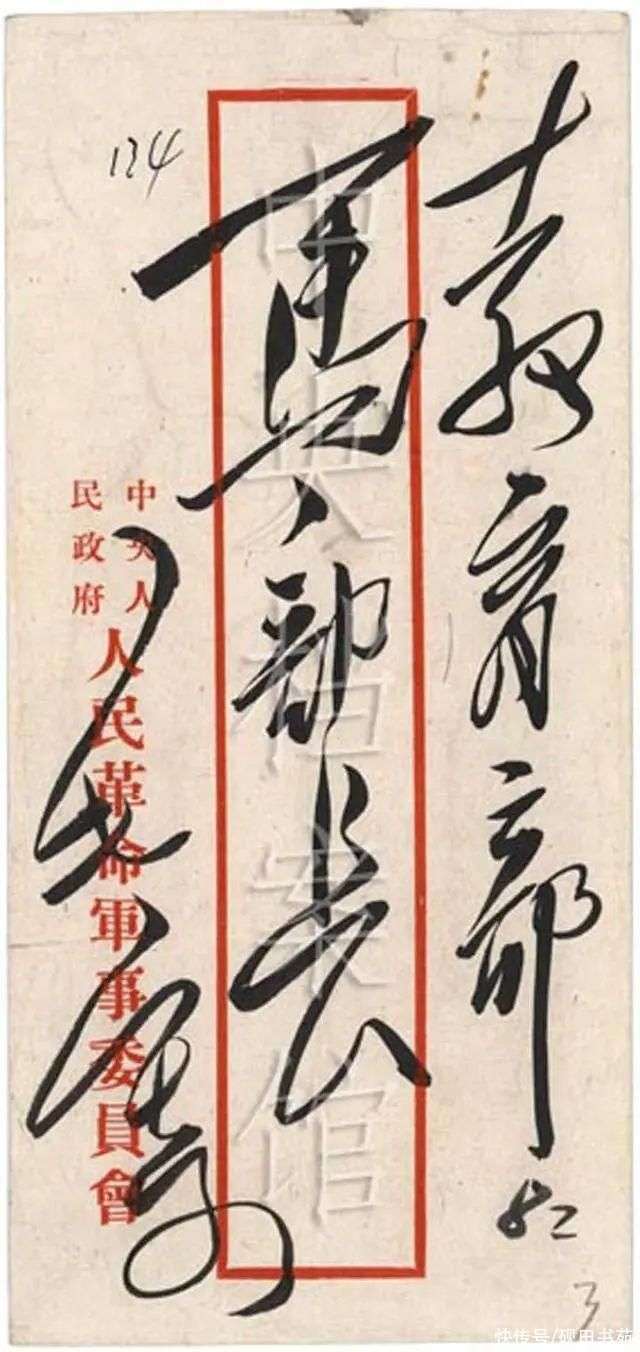 教育部
馬部长
中央人
民政府
人民革命軍事委員會
124
3
中央档案馆
快传号/砚田书苑